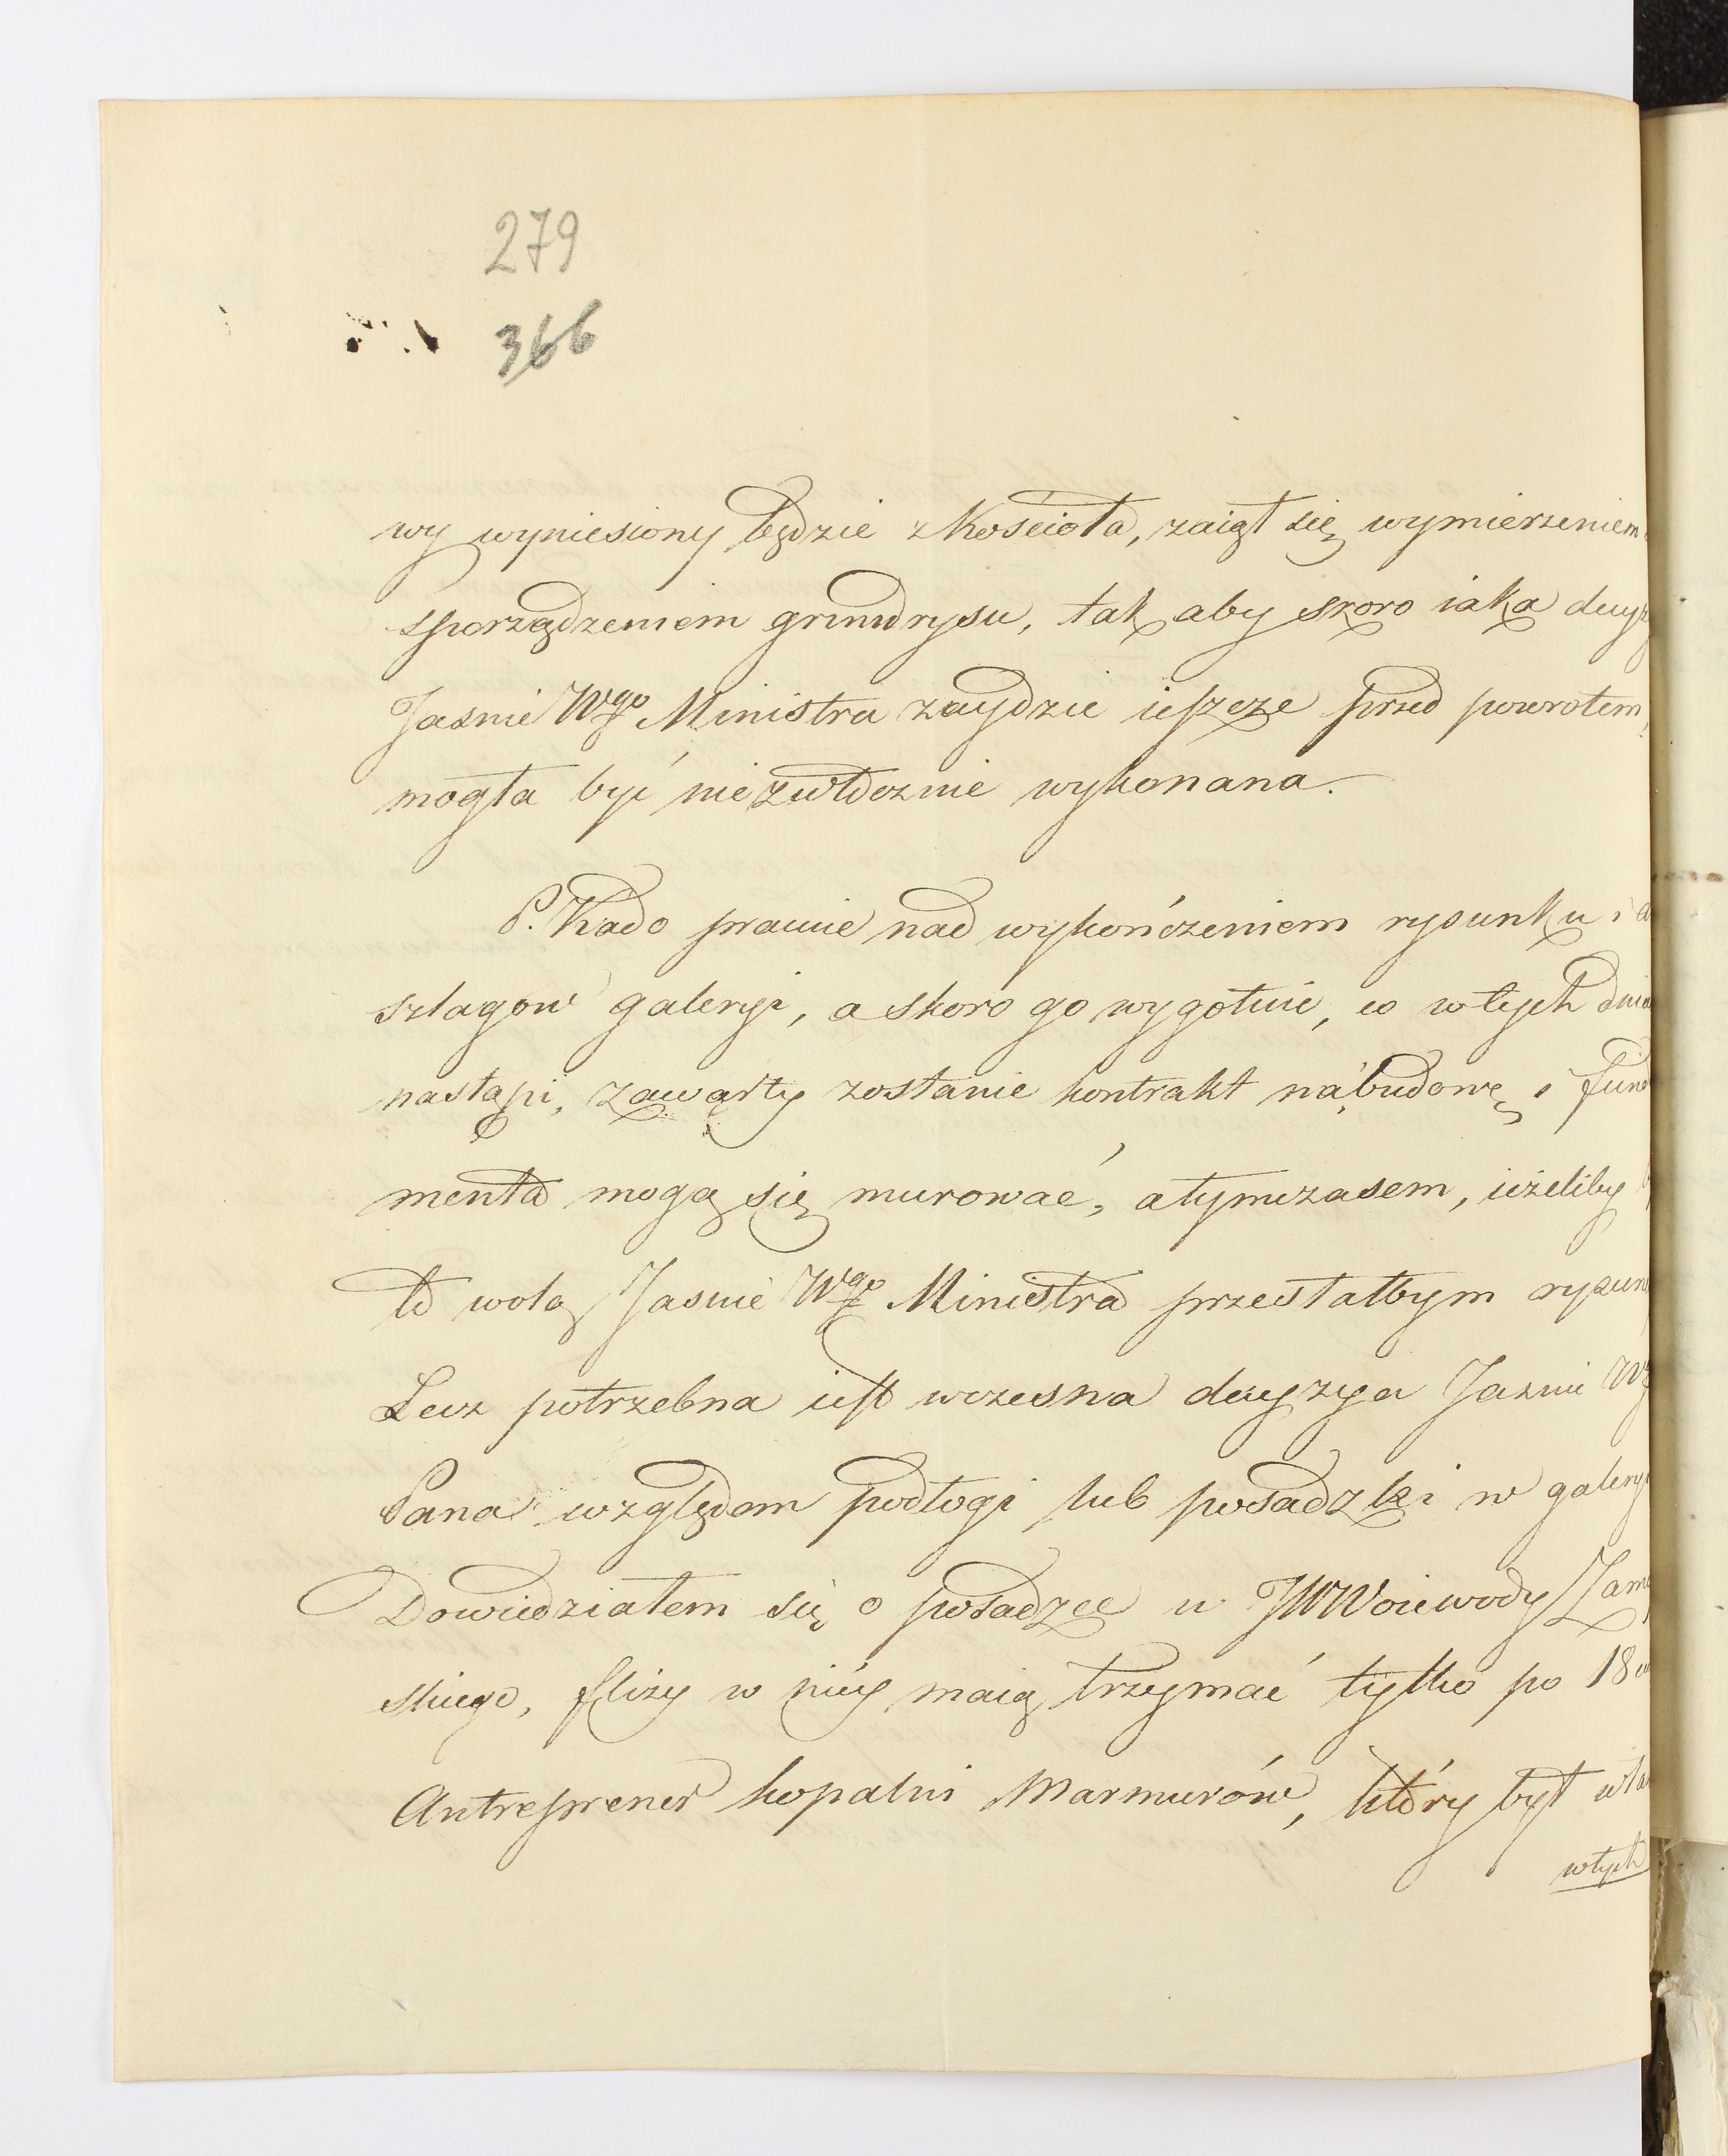 279
366
wy wyniesiony będzie z Kościoła, zaiął się wymierzeniem
sporządzeniem grundrysu, tak aby skoro iaka decyz
Jasnie Wgo Ministra zaydzie ieszcze przed powrotem,
mogła być niezwłocznie wykonana.
P. Kado pracuie nad wykończeniem rysunku i a
szlagow galeryi, a skoro go wygotuie, co w tych dnia
nastąpi, zawarty zostanie kontrakt na budowę i fun
menta mogą się murować, a tymczasem, ieżeliby
to wolą Jasnie Wgo Ministra przesłałbym rysun
Lecz potrzebna iest wczesna decyzya Jasnie W
Pana względem podłogi lub posadzki w galery
Dowiedziałem się o posadzce u JWWoiewody Zam
skiego, flizy w niéy maią trzymać tylko po 18
Antreprener kopalni Marmurów, który był wła
w tych